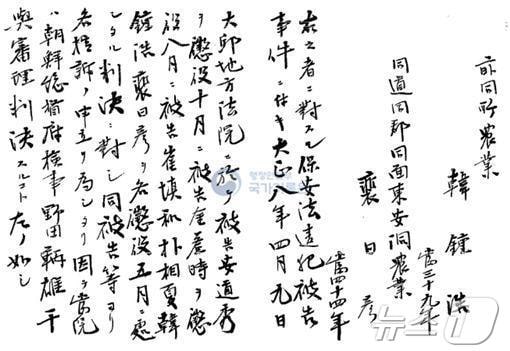 前同所農業
韓鍾浩
當三十九年
同道同郡同面東安洞農業
裵日彦
當四十四年
右之者ニ對スル保安法違犯被告
事件ニ付キ大正八年四月九日
大邱地方法院ニ於テ被告安道秀
ヲ懲役十月ニ被告金應時ヲ懲
役八月ニ被告崔塡和朴相夏韓
鍾浩裵日彦ヲ各懲役五月ニ處
シタル判決ニ對シ同被告等ヨリ
各控訴ノ申立ヲ為シタリ因テ當院
ハ朝鮮総督府検事野田鞆雄干
與審理判決スルコト左ノ如シ
행정안전부
국가기록원
뉴스1